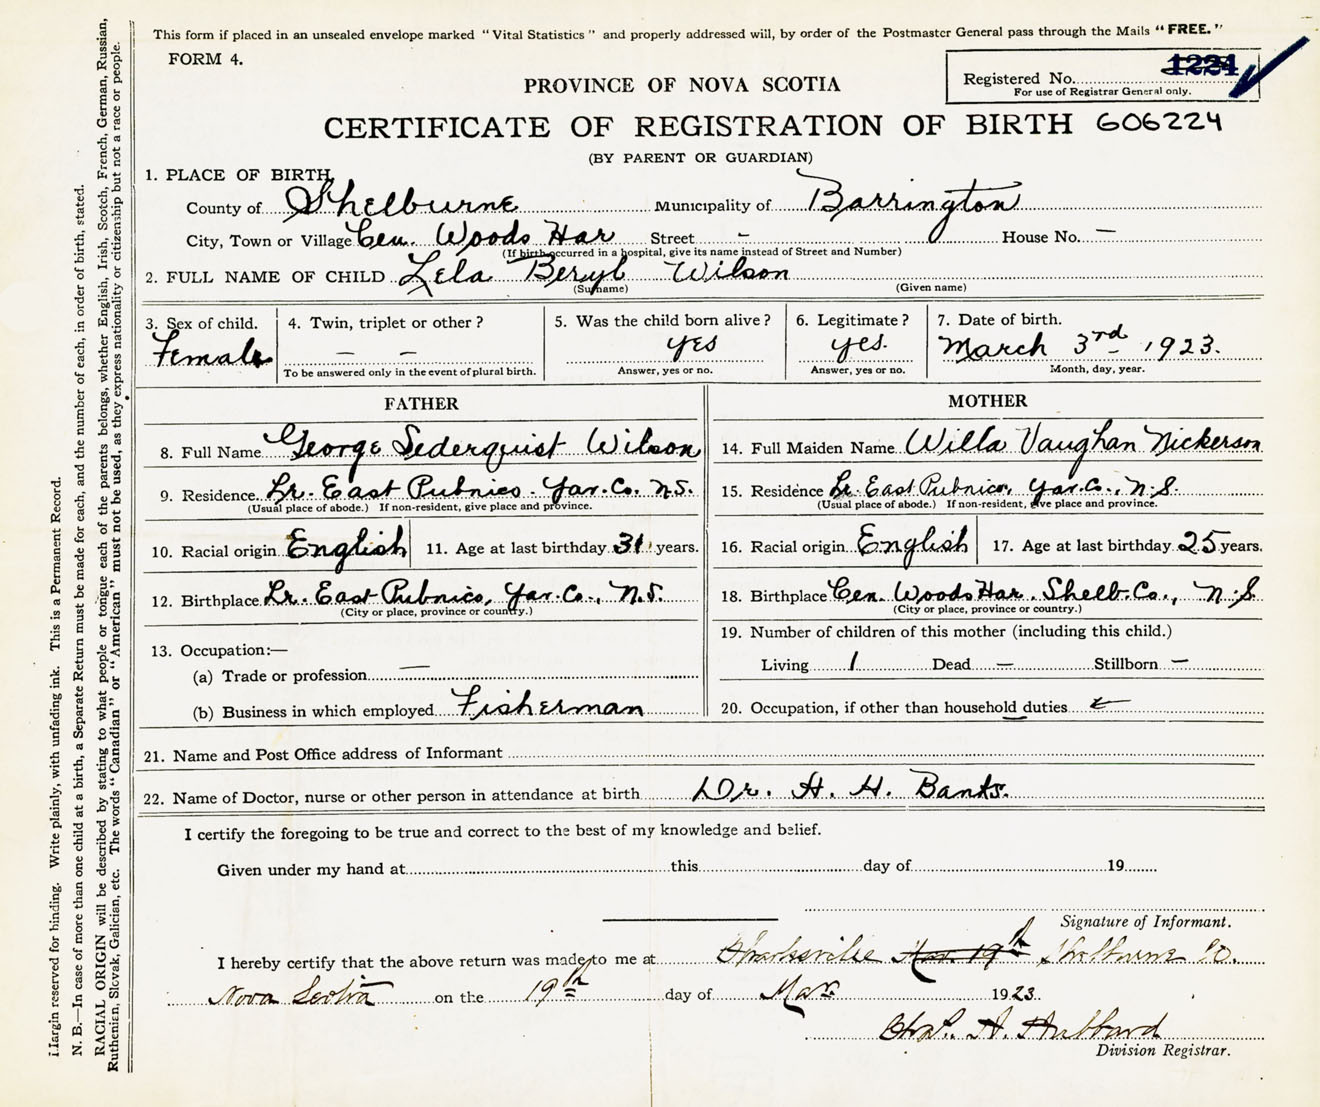 This form if placed in an unsealed envelope marked "Vital Statistics" and properly addressed will, by order of the Postmaster General pass through the Mails "FREE."
FORM 4.
Registered No. 1224
For use of Registrar General only.
PROVINCE OF NOVA SCOTIA
CERTIFICATE OF REGISTRATION OF BIRTH 606224
(BY PARENT OR GUARDIAN)
1. PLACE OF BIRTH
County of Shelburne Municipality of Barrington
City, Town or Village Cen. Woods Har Street - House No. -
(If birth occurred in a hospital, give its name instead of Street and Number)
2. FULL NAME OF CHILD Lela Beryl Wilson
(Surname) (Given name)
3. Sex of child. 4. Twin, triplet or other? 5. Was the child born alive? 6. Legitimate? 7. Date of birth.
Female - - yes yes. March 3rd 1923.
To be answered only in the event of plural birth. Answer, yes or no. Answer, yes or no. Month, day, year.
FATHER
8. Full Name George Sederquist Wilson
9. Residence Lr. East Pubnico Yar. Co. N.S.
(Usual place of abode.) If non-resident, give place and province.
10. Racial origin English 11. Age at last birthday 31 years.
12. Birthplace Lr. East Pubnico, Yar. Co., N.S.
(City or place, province or country.)
13. Occupation:—
(a) Trade or profession —
(b) Business in which employed Fisherman
MOTHER
14. Full Maiden Name Willa Vaughan Nickerson
15. Residence Lr. East Pubnico, Yar. Co., N.S.
(Usual place of abode.) If non-resident, give place and province.
16. Racial origin English 17. Age at last birthday 25 years.
18. Birthplace Cen. Woods Har. Shelb. Co., N.S
(City or place, province or country.)
19. Number of children of this mother (including this child.)
Living 1 Dead — Stillborn —
20. Occupation, if other than household duties
21. Name and Post Office address of Informant
22. Name of Doctor, nurse or other person in attendance at birth Dr. H. H. Banks.
I certify the foregoing to be true and correct to the best of my knowledge and belief.
Given under my hand at this day of 19
Signature of Informant.
I hereby certify that the above return was made to me at Mar. 19th Shelburne Co.
Nova Scotia on the 19th day of Mar 1923.
Chas. A. Hubbard
Division Registrar.
Margin reserved for binding. Write plainly, with unfading ink. This is a Permanent Record.
N. B.—In case of more than one child at a birth, a Separate Return must be made for each, and the number of each, in order of birth, stated.
RACIAL ORIGIN will be described by stating to what people or tongue each of the parents belongs, whether English, Irish, Scotch, French, German, Russian,
Ruthenian, Slovak, Galician, etc. The words "Canadian" or "American" must not be used, as they express nationality or citizenship but not a race or people.